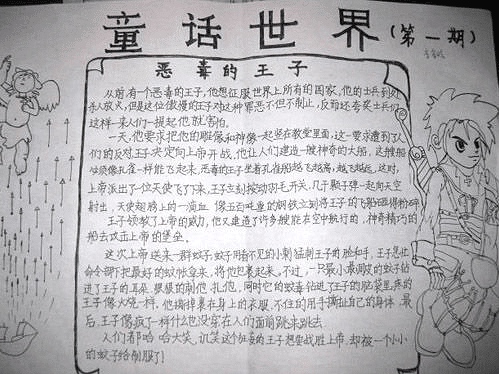 童话世界（第一期）
恶毒的王子
从前,有个恶毒的王子,他想征服世界上所有的国家,他的士兵到处
杀人放火,但是这位傲慢的王子对这种罪恶不但不制止,反而还夸奖士兵们
这样一来人们一提起他就害怕。
一天,他要求把他的雕像和神像一起竖在教堂里面,这一要求遭到了人
们的反对,王子决定向上帝开战,他让人们建造一艘神奇的大船,这艘船
像孔雀一样能飞起来,恶毒的王子坐着孔雀船越飞越高,越飞越远,这时,
上帝派出了一位天使飞了下来,王子立刻按动羽毛开关,几千颗子弹一起向天空
射出,天使翅膀上的一滴血像五百吨重的钢铁立刻将王子的飞船砸得粉碎
王子领教了上帝的威力,他又建造了许多艘能在空中航行的,神奇精巧的
船去攻击上帝的堡垒。
这次上帝送来一群蚊子,蚊子用看不见的小刺猛刺王子的脸和手,王子急忙
命令部下把最好的蚊帐拿来,将他包裹起来,不过,一只最小最调皮的蚊子钻
进了王子的耳朵,狠狠的刺他,扎他,同时它的毒钻进了王子的脑袋里,疼的
王子像火烧一样,他撕掉裹在身上的衣服,不住的用手撕扯自己的身体,最
后,王子像疯了一样什么也没穿在人们面前跳来跳去
人们都哈哈大笑,讥笑这个恶毒的王子想要战胜上帝,却被一个小小
的蚊子给制服了!